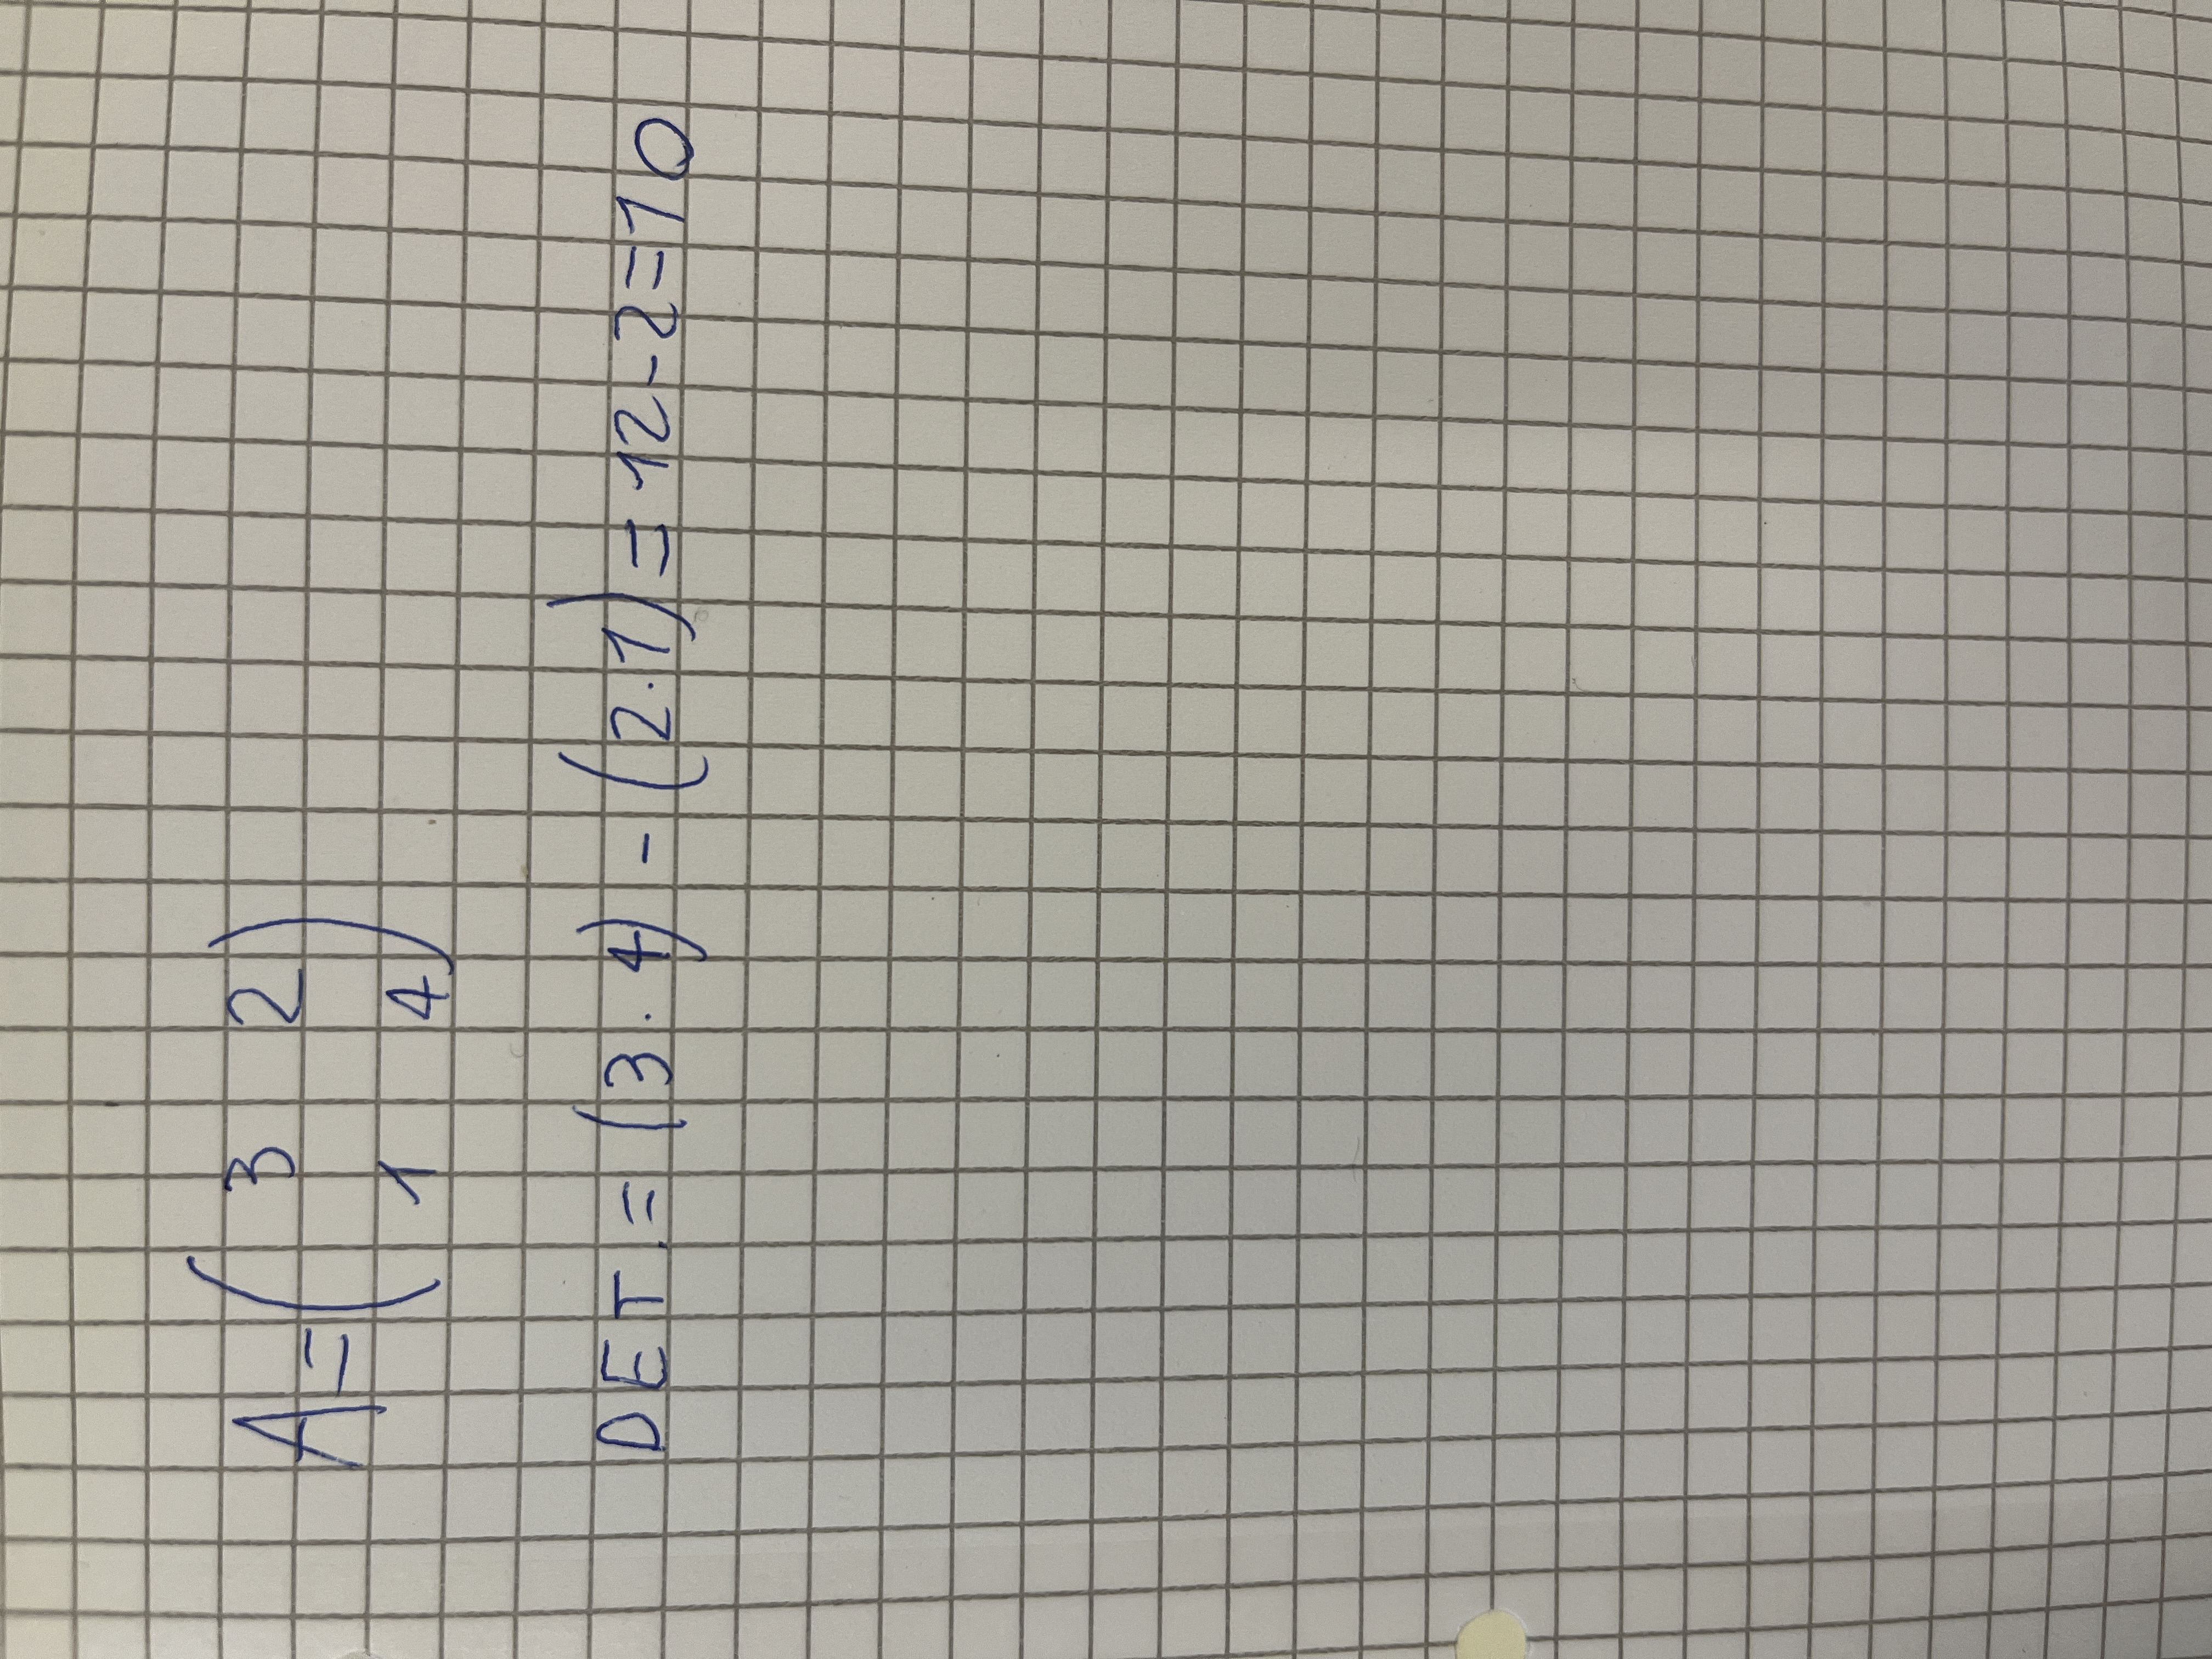 A = ( 3 2
1 4 )
DET. = (3 . 4) - (2.1) = 12-2=10